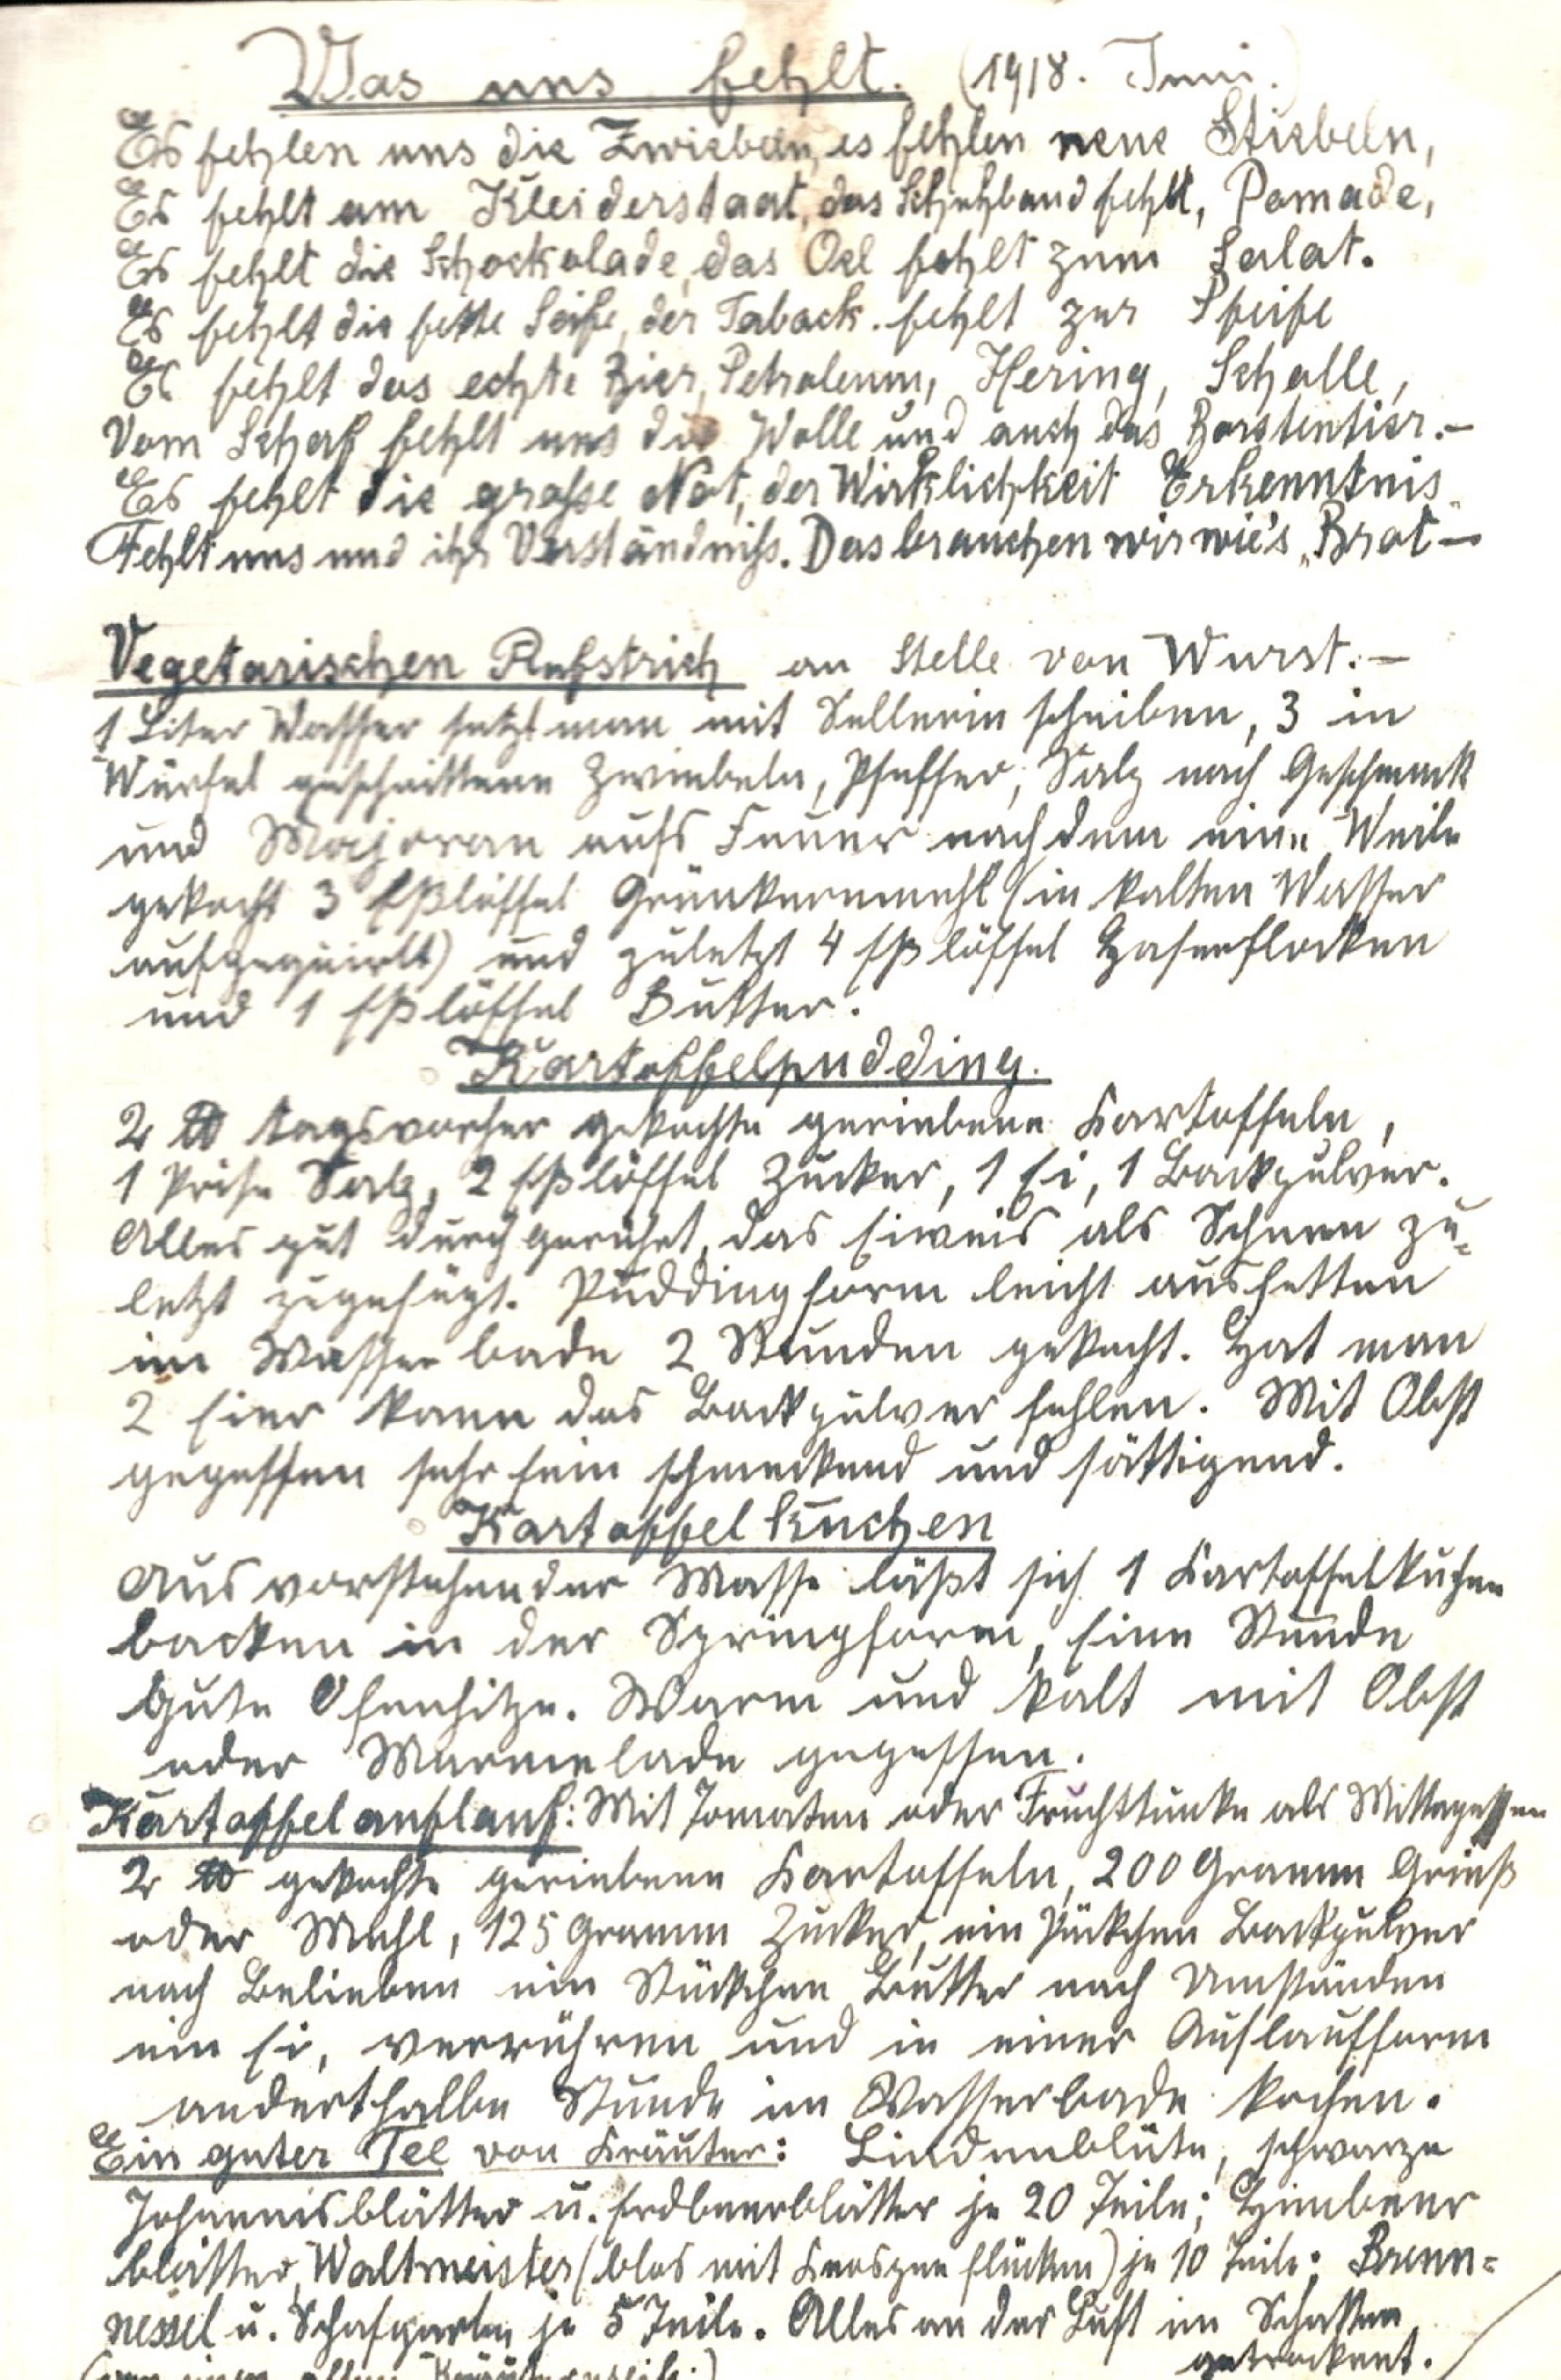 Was uns fehlt. (1918. Juni.)
Es fehlen uns die Zwiebeln, es fehlen neue Stiebeln,
Es fehlt am Kleiderstaat, das Schuhband fehlt, Pomade,
Es fehlt die Schockolade, das Oel fehlt zum Salat.
Es fehlt die fette Seife, der Taback fehlt zur Pfeife
Es fehlt das echte Bier, Petroleum, Hering, Scholle,
Vom Schaf fehlt uns die Wolle und auch das Borstentier.-
Es fehlt die große Not, der Wirklichkeit Erkenntnis
Fehlt uns und ihr Verständniß. Das brauchen wir wie's „Brot-
Vegetarischen Aufstrich an Stelle von Wurst.-
1 Liter Wasser setzt man mit Sellerie scheiben, 3 in
Würfel geschnittene Zwiebeln, Pfeffer, Salz nach Geschmack
und Majoran aufs Feuer nachdem eine Weile
gekocht 3 Eßlöffel Grünkernmehl (in kalten Wasser
aufgequirlt) und zuletzt 4 Eßlöffel Haferflocken
und 1 Eßlöffel Butter.
Kartoffelpudding.
2 ℔ tagsvorher gekochte geriebene Kartoffeln,
1 Prise Salz, 2 Eßlöffel Zucker, 1 Ei, 1 Backpulver.
Alles gut durch gerührt, das Eiweis als Schnee zu=
letzt zugefügt. Puddingform leicht ausfetten
im Wasser bade 2 Stunden gekocht. Hat man
2 Eier kann das Backpulver fehlen. Mit Obst
gegessen sehr fein schmeckend und sättigend.
Kartoffelkuchen
Aus vorstehender Masse läßt sich 1 Kartoffelkuchen
backen in der Springform, Eine Stunde
gute Ofenhitze. Warm und kalt mit Obst
oder Marmelade gegessen.
Kartoffelauflauf: Mit Tomaten oder Fruchttunke als Mittagessen
2 ℔ gekochte geriebene Kartoffeln, 200 Gramm Grieß
oder Mehl, 125 Gramm Zucker, ein Päckchen Backpulver
nach Belieben ein Stückchen Butter nach Umständen
ein Ei, verrühren und in einer Auflaufform
anderthalbe Stunde im Wasserbade kochen.
Ein guter Tee von Kräuter: Lindenblüte, schwarze
Johannisblätter u. Erdbeerblätter je 20 Teile; Himbeer
blätter, Waltmeister (blos mit Knospen flücken) je 10 Teile; Brenn=
nessel u. Schafgarbe je 5 Teile. Alles an der Luft im Schatten
getrocknet.